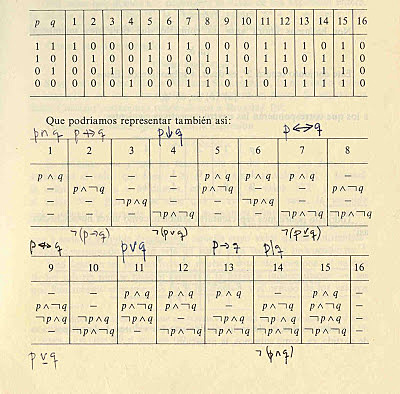 p q 1 2 3 4 5 6 7 8 9 10 11 12 13 14 15 16
1 1 1 0 0 0 1 1 1 0 0 0 1 1 1 0 1 0
1 0 0 1 0 0 1 0 0 1 1 0 1 1 0 1 1 0
0 1 0 0 1 0 0 1 0 0 1 1 1 0 1 1 1 0
0 0 0 0 0 1 0 0 1 1 0 1 0 1 1 1 1 0
Que podríamos representar también así:
p∩q p↛q p↓q p↔q
1 2 3 4 5 6 7 8
p ∧ q – – – p ∧ q p ∧ q p ∧ q –
– p∧¬q – – p∧¬q – – p∧¬q
– – ¬p∧q – – ¬p∧q – –
– – – ¬p∧¬q – – ¬p∧¬q ¬p∧¬q
¬(p→q) ¬(p∨q) ¬(p⊻q)
p↮q p∨q p→q p|q
9 10 11 12 13 14 15 16
– – p ∧ q p ∧ q p ∧ q – p ∧ q –
p∧¬q – p∧¬q p∧¬q – p∧¬q p∧¬q –
¬p∧q ¬p∧q ¬p∧q – ¬p∧q ¬p∧q ¬p∧q –
– ¬p∧¬q – ¬p∧¬q ¬p∧¬q ¬p∧¬q ¬p∧¬q –
p⊻q ¬(p∩q)